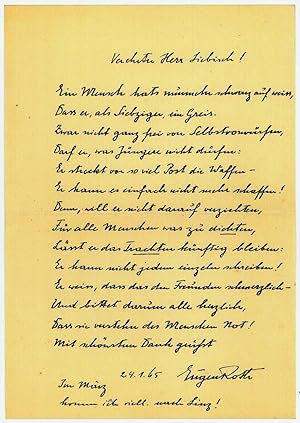 Verehrter Herr Liebisch!
Ein Mensch hats nunmehr schwarz auf weiss,
Dass er, als Siebziger, ein Greis.
Zwar nicht ganz frei von Selbstvorwürfen,
Darf er, was Jüngere nicht dürfen:
Er streckt vor so viel Post die Waffen –
Er kann es einfach nicht mehr schaffen!
Denn, will er nicht darauf verzichten,
Für alle Menschen was zu dichten,
Lässt er das Trachten künftig bleiben:
Er kann nicht jedem einzeln schreiben!
Er weiss, dass das den Freunden schmerzlich –
Und bittet darum alle herzlich,
Dass sie verstehn des Menschen Not!
Mit schönstem Dank grüsst
24.1.65 Eugen Roth
Im März
komm ich viell. nach Linz!